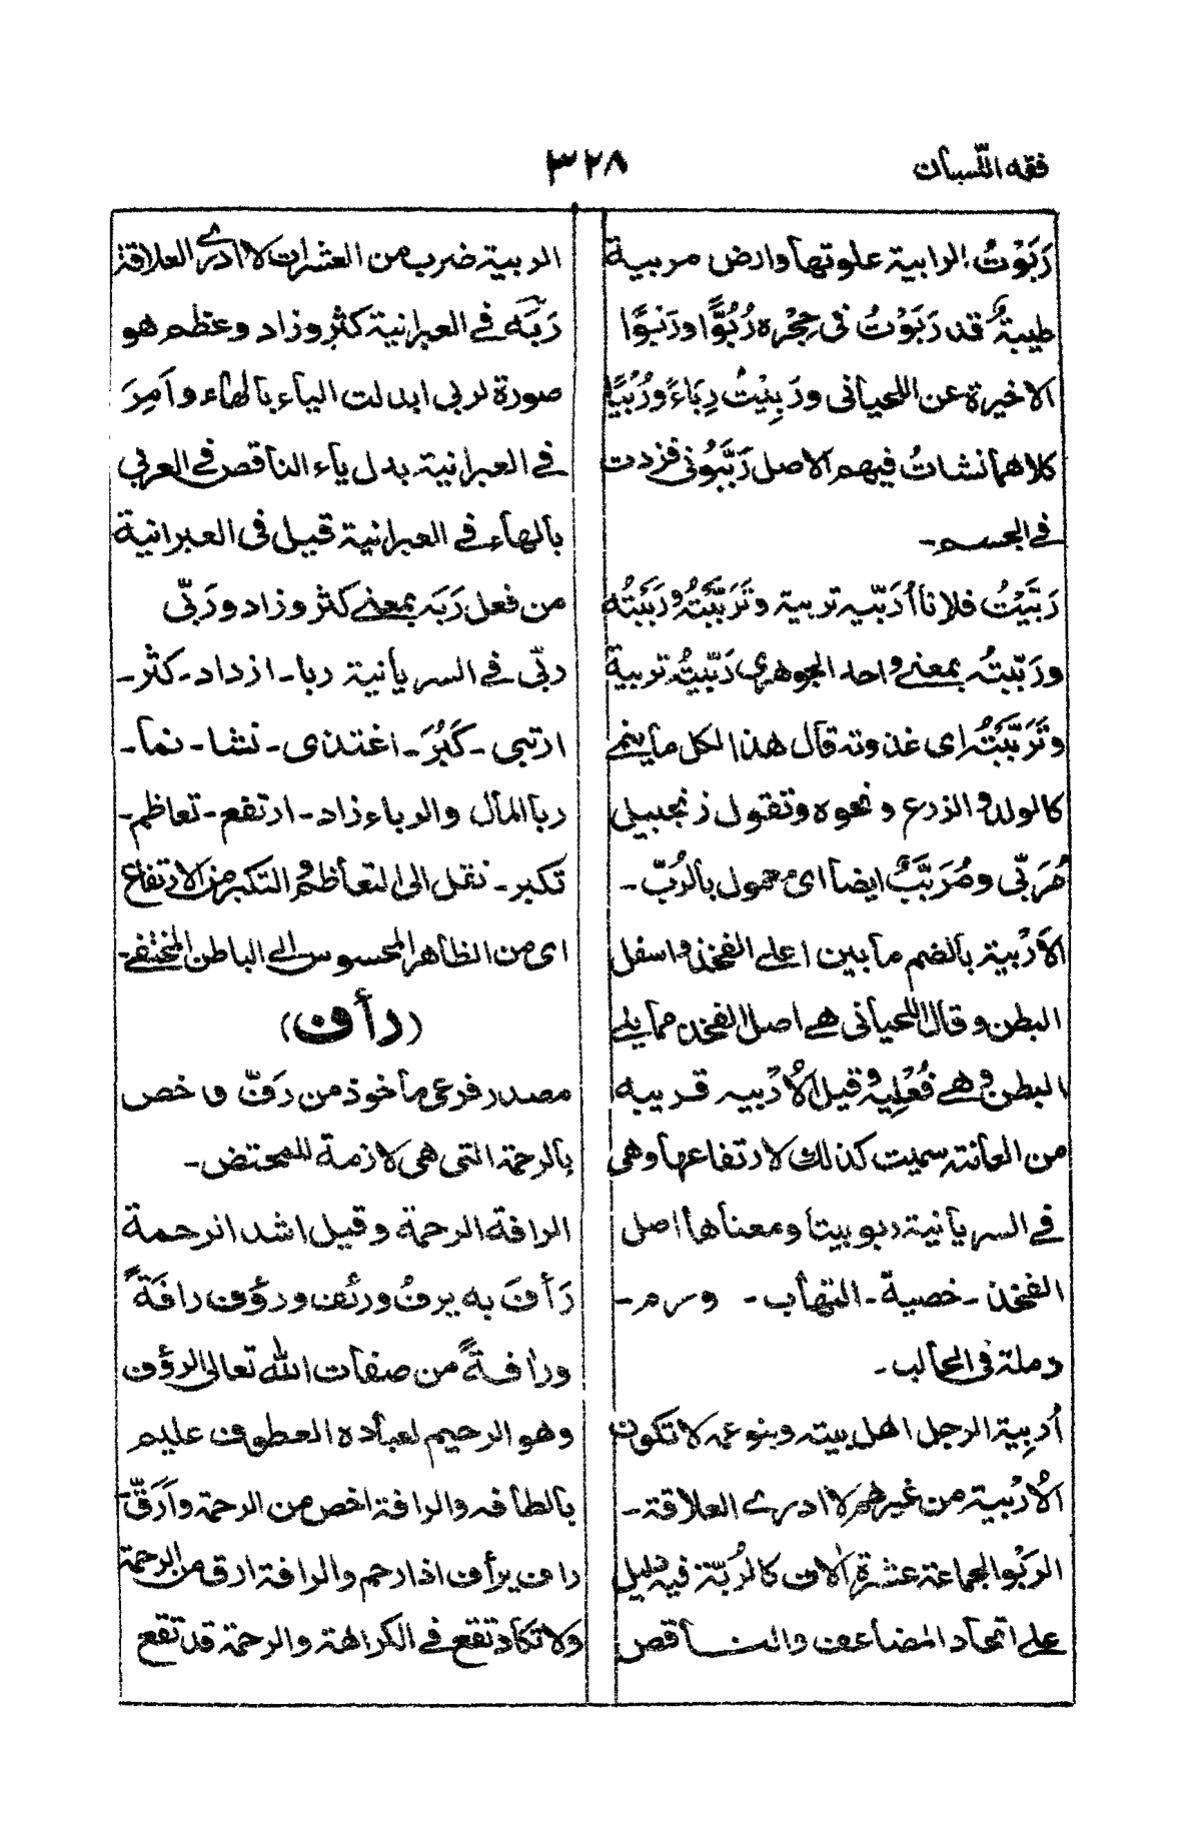 فقه اللسان
٣٢٨
رَبَوْتُ الرابية علوتها وارض مربية
طيبةٌ قد رَبَوْتُ فى حِجْره رُبُوًّا ورَبْوًا
الاخيرة عن اللحيانى ورَبِيْتُ رِبَاءً ورُبِيًّا
كلاهما نشاتُ فيهم الاصل رَبَّبُونى فزدت
فى الجسم۔
رَبَّيْتُ فلانا أُرَبّيه تربية وتَرَبَّبْتُه ورَبَبْتُه
وربّبتُه بمعنى واحد الجوهرى رَبّيتُه تربية
وتَرَبَّبْتُه اى غذوته قال هذا لكل ما ينمى
كالولد والزرع و نحوه وتقول زنجبيلى
مُرَبّى ومُرَبَّبٌ ايضا اى معمول بالرُبّ۔
الاُرْبية بالضم ما بين اعلى الفخذ واسفل
البطن وقال اللحيانى هى اصل الفخذ مما يلى
البطن وهى فُعْلِية وقيل الاُرْبيه قريبه
من العانته سميت كذلك لارتفاعها وهى
فى السريانية ربوبيتا ومعناها اصل
الفخذ۔ خصية۔ التهاب۔ ورم۔
دملة فى الحالب۔
اُربِية الرجل اهل بيته وبنو عمه لا تكون
الاُرْبية من غيرهم لا ادرى العلاقة۔
الرَبْو الجماعة عشرة الاف كالرُبّة فيه دليل
على اتحاد المضاعف والناقص
الربية ضرب من العشرات لا ادرى العلاقة
رَبَه فى العبرانية كثر وزاد وعظم هو
صورة لربى ابدلت الياء بالهاء وآمِرَ
فى العبرانية بدل ياء الناقص فى العربى
بالهاء فى العبرانية قيل فى العبرانية
من فعل رَبَه بمعنى كثر وزاد ورَبّى
ربّى فى السريانية ربا۔ ازداد۔ كثر۔
ارتبى۔ كَبُرَ۔ اغتذى۔ نشا۔ نما۔
ربا المال والرباء زاد۔ ارتفع۔ تعاظم۔
تكبر۔ نقل الى التعاظم والتكبر من الارتفاع
اى من الظاهر المحسوس الى الباطن المختفى۔
(رأف)
مصدر فرعى ماخوذ من رَفّ و خص
بالرحمة التى هى لازمة للمحتض۔
الرافة الرحمة وقيل اشد الرحمة
رَأفَ به يرفُ ورئف ورؤف رافَةً
ورٰافةً من صفات الله تعالى الرؤف
وهو الرحيم لعباده العطوف عليم
بالطافه والرافة اخص من الرحمة وآرَقّ۔
راف يرأف اذا رحم والرافة ارق من الرحمة
ولا تكاد تقع فى الكراهة والرحمة قد تقع